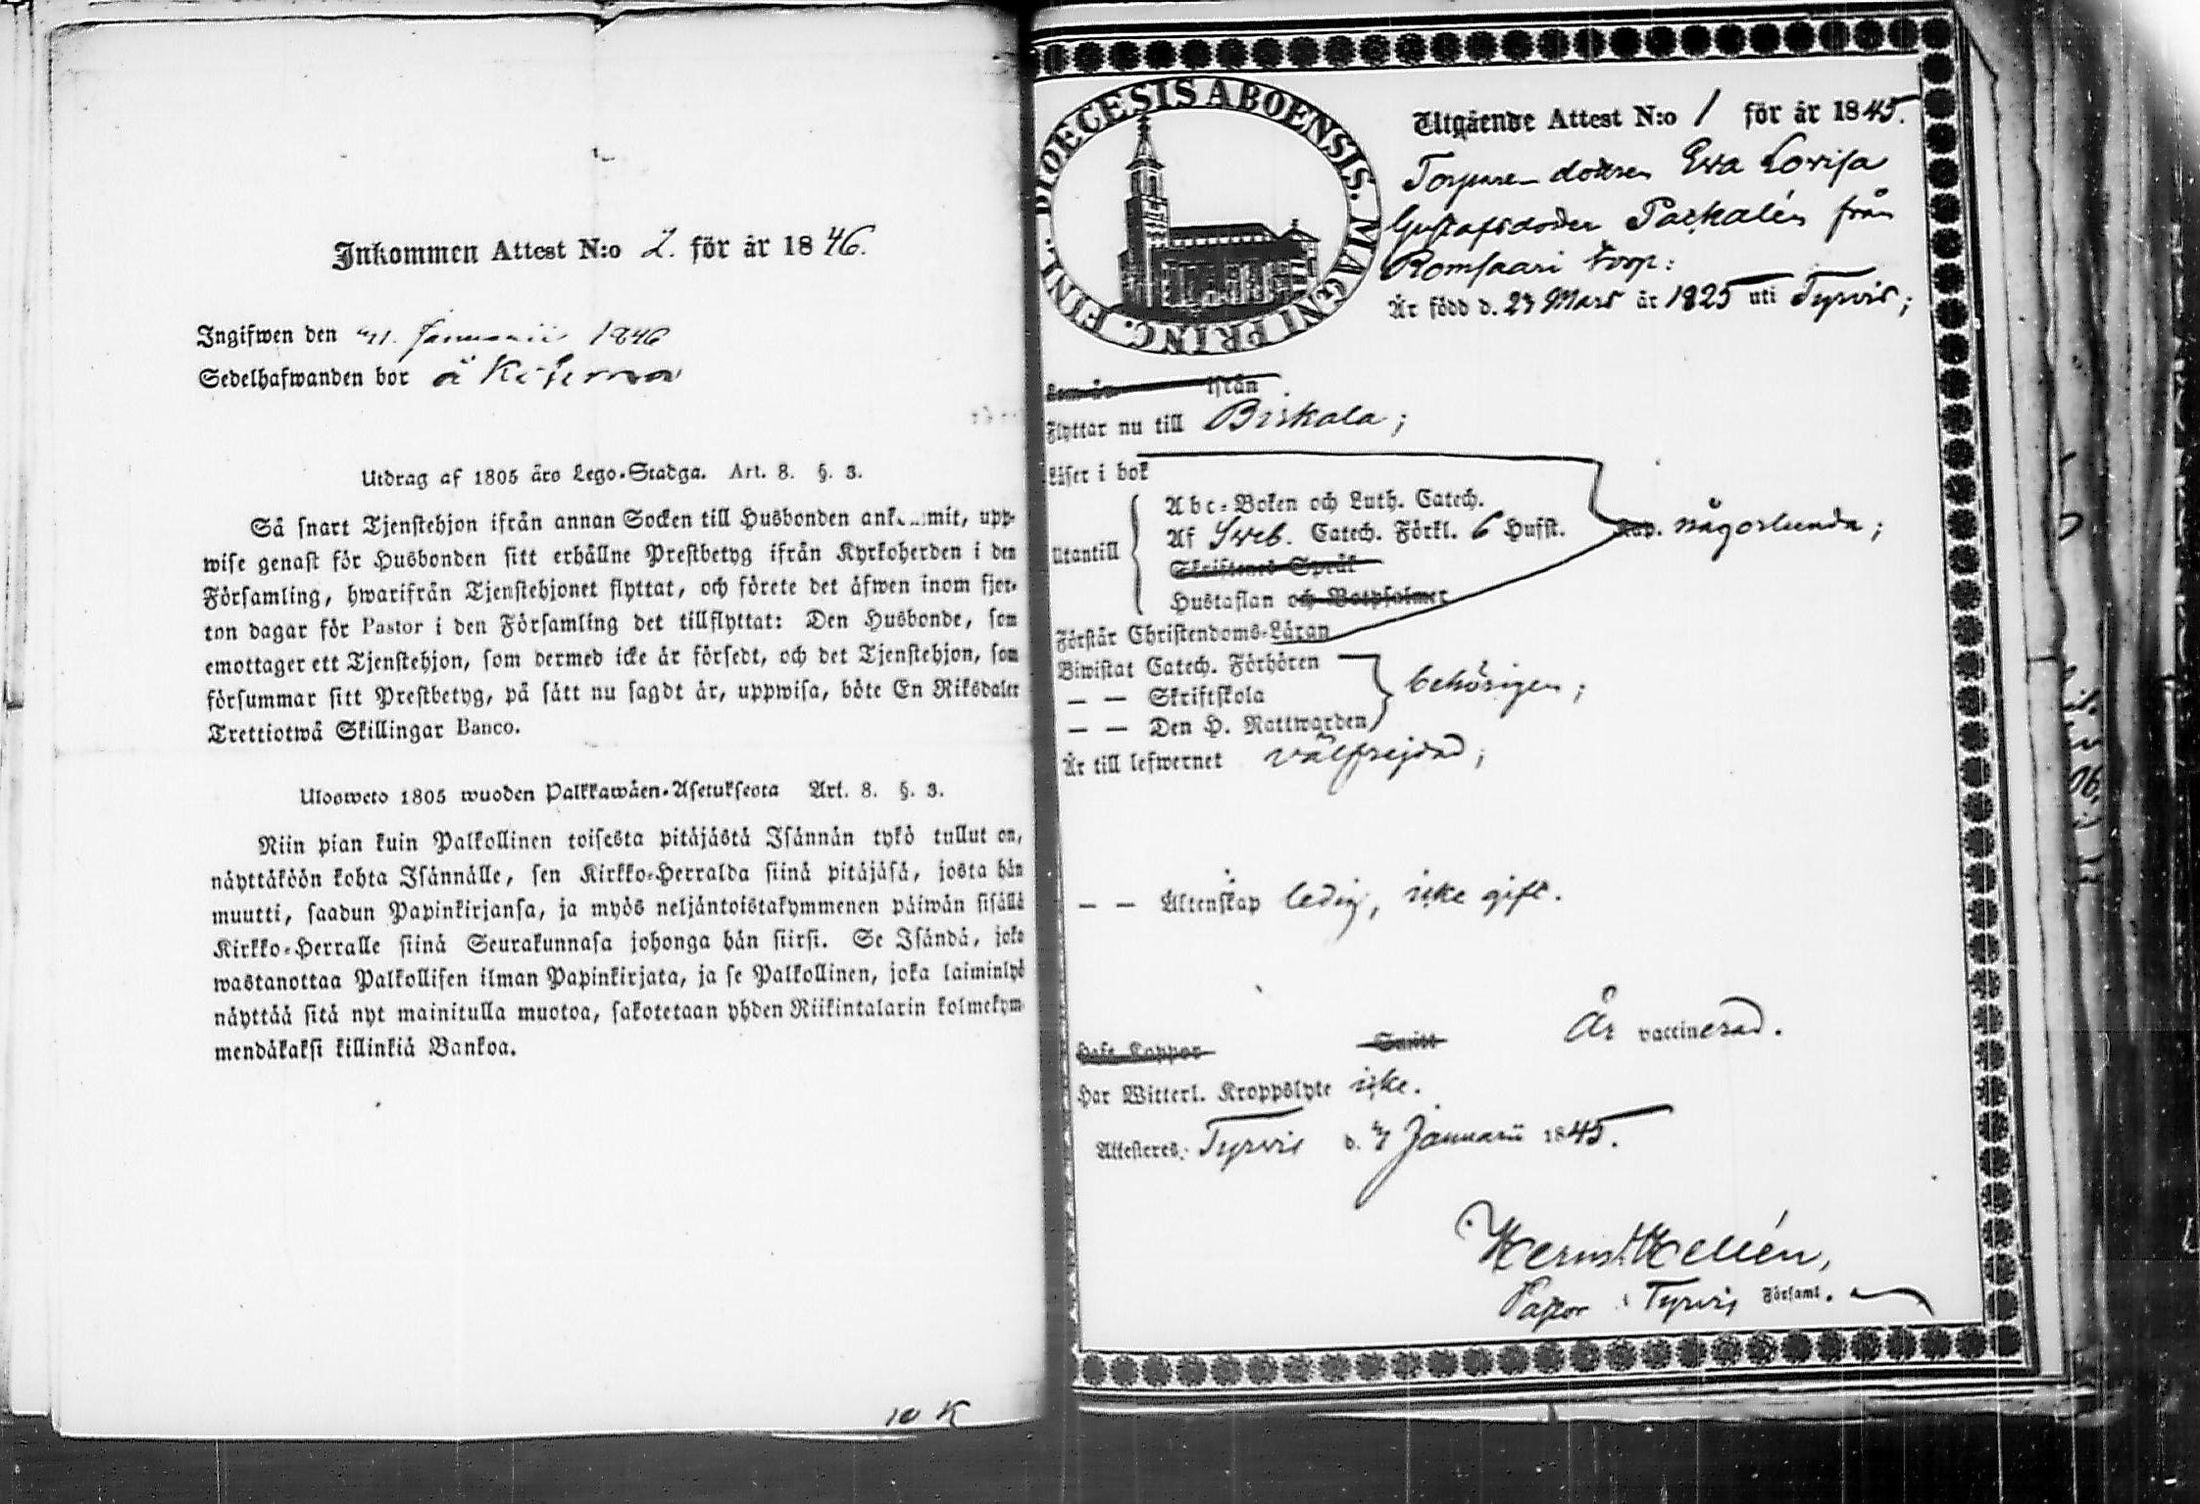 Inkommen Attest N:o 2. för år 1846.
Ingifwen den Januarii 1846
Sedelhafwanden bor å
Utdrag af 1805 års Lego-Stadga. Art. 8. §. 3.
Så snart Tjenstehjon ifrån annan Socken till Husbonden mit, upp-
wise genast för Husbonden sitt erhållne Prestbetyg ifrån Kyrkoherden i den
Församling, hwarifrån Tjenstehjonet flyttat, och förete det äfwen inom fjor-
ton dagar för Pastor i den Församling det tillflyttat: Den Husbonde, som
emottager ett Tjenstehjon, som dermed icke är försedt, och det Tjenstehjon, som
försummar sitt Prestbetyg, på sätt nu sagdt är, uppwisa, böte En Riksdaler
Trettiotwå Skillingar Banco.
Ulosweto 1805 wuoden Palkkawäen-Asetuksesta Art. 8. §. 3.
Niin pian kuin Palkollinen toisesta pitäjästä Isännän tykö tullut on,
näyttäköön kohta Isännälle, sen Kirkko-Herralda siinä pitäjäsä, josta hän
muutti, saadun Papinkirjansa, ja myös neljäntoistakymmenen päiwän sisällä
Kirkko-Herralle siinä Seurakunnasa johonga hän siirsi. Se Isändä, joka
wastanottaa Palkollisen ilman Papinkirjata, ja se Palkollinen, joka laiminlyö
näyttää sitä nyt mainitulla muotoa, sakotetaan yhden Riikintalarin kolmekym-
mendäkaksi killinkiä Bankoa.
10 K
DIOECESIS ABOENSIS. MAGNI PRINC. FINL.
Utgående Attest N:o 1 för år 1845.
Ewa Lovisa
Gustafsdotter från
Romsaari torp:
Är född d. 23 Mars år 1825 uti Tyrvis;
ifrån
Flyttar nu till Birkala;
Läser i bok
Abc-Boken och Luth. Catech.
Utantill Af Sveb. Catech. Förkl. 6 Hufst. Kap. någorlunda;
Skriftenes Språk
Hustaflan och Botpsalmer
Förstår Christendoms-Läran
Biwistat Catech. Förhören
— — Skriftskola behörigen;
— — Den H. Nattwarden
Är till lefwernet välfrejdad;
— — Äktenskap ledig, icke gift.
Haft Koppor Är vaccinerad.
Har Witterl. Kroppslyte icke.
Attesteras: Tyrvis d. Januarii 1845.
Herm. Hellén,
Pastor i Tyrvis Församl.